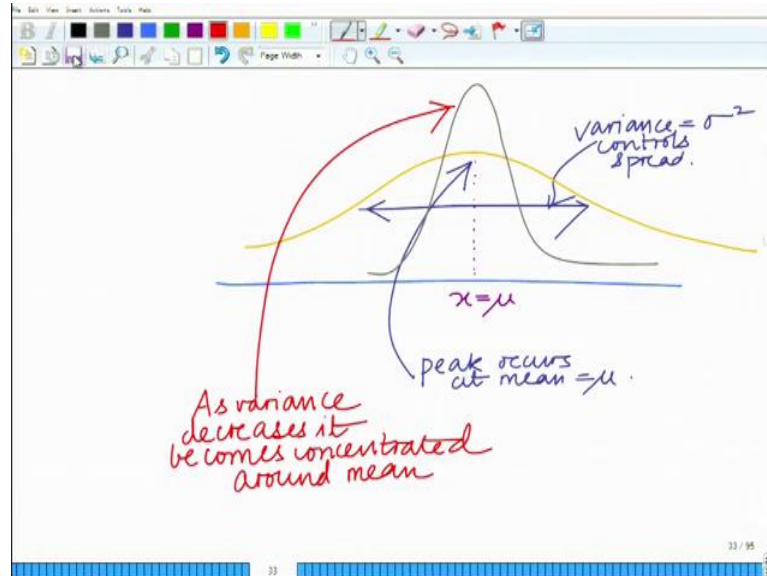 File Edit View Insert Actions Tools Help
B I
Page Width
variance = σ²
controls
spread.
x=μ
peak occurs
at mean = μ.
As variance
decreases it
becomes concentrated
around mean
33 / 95
33